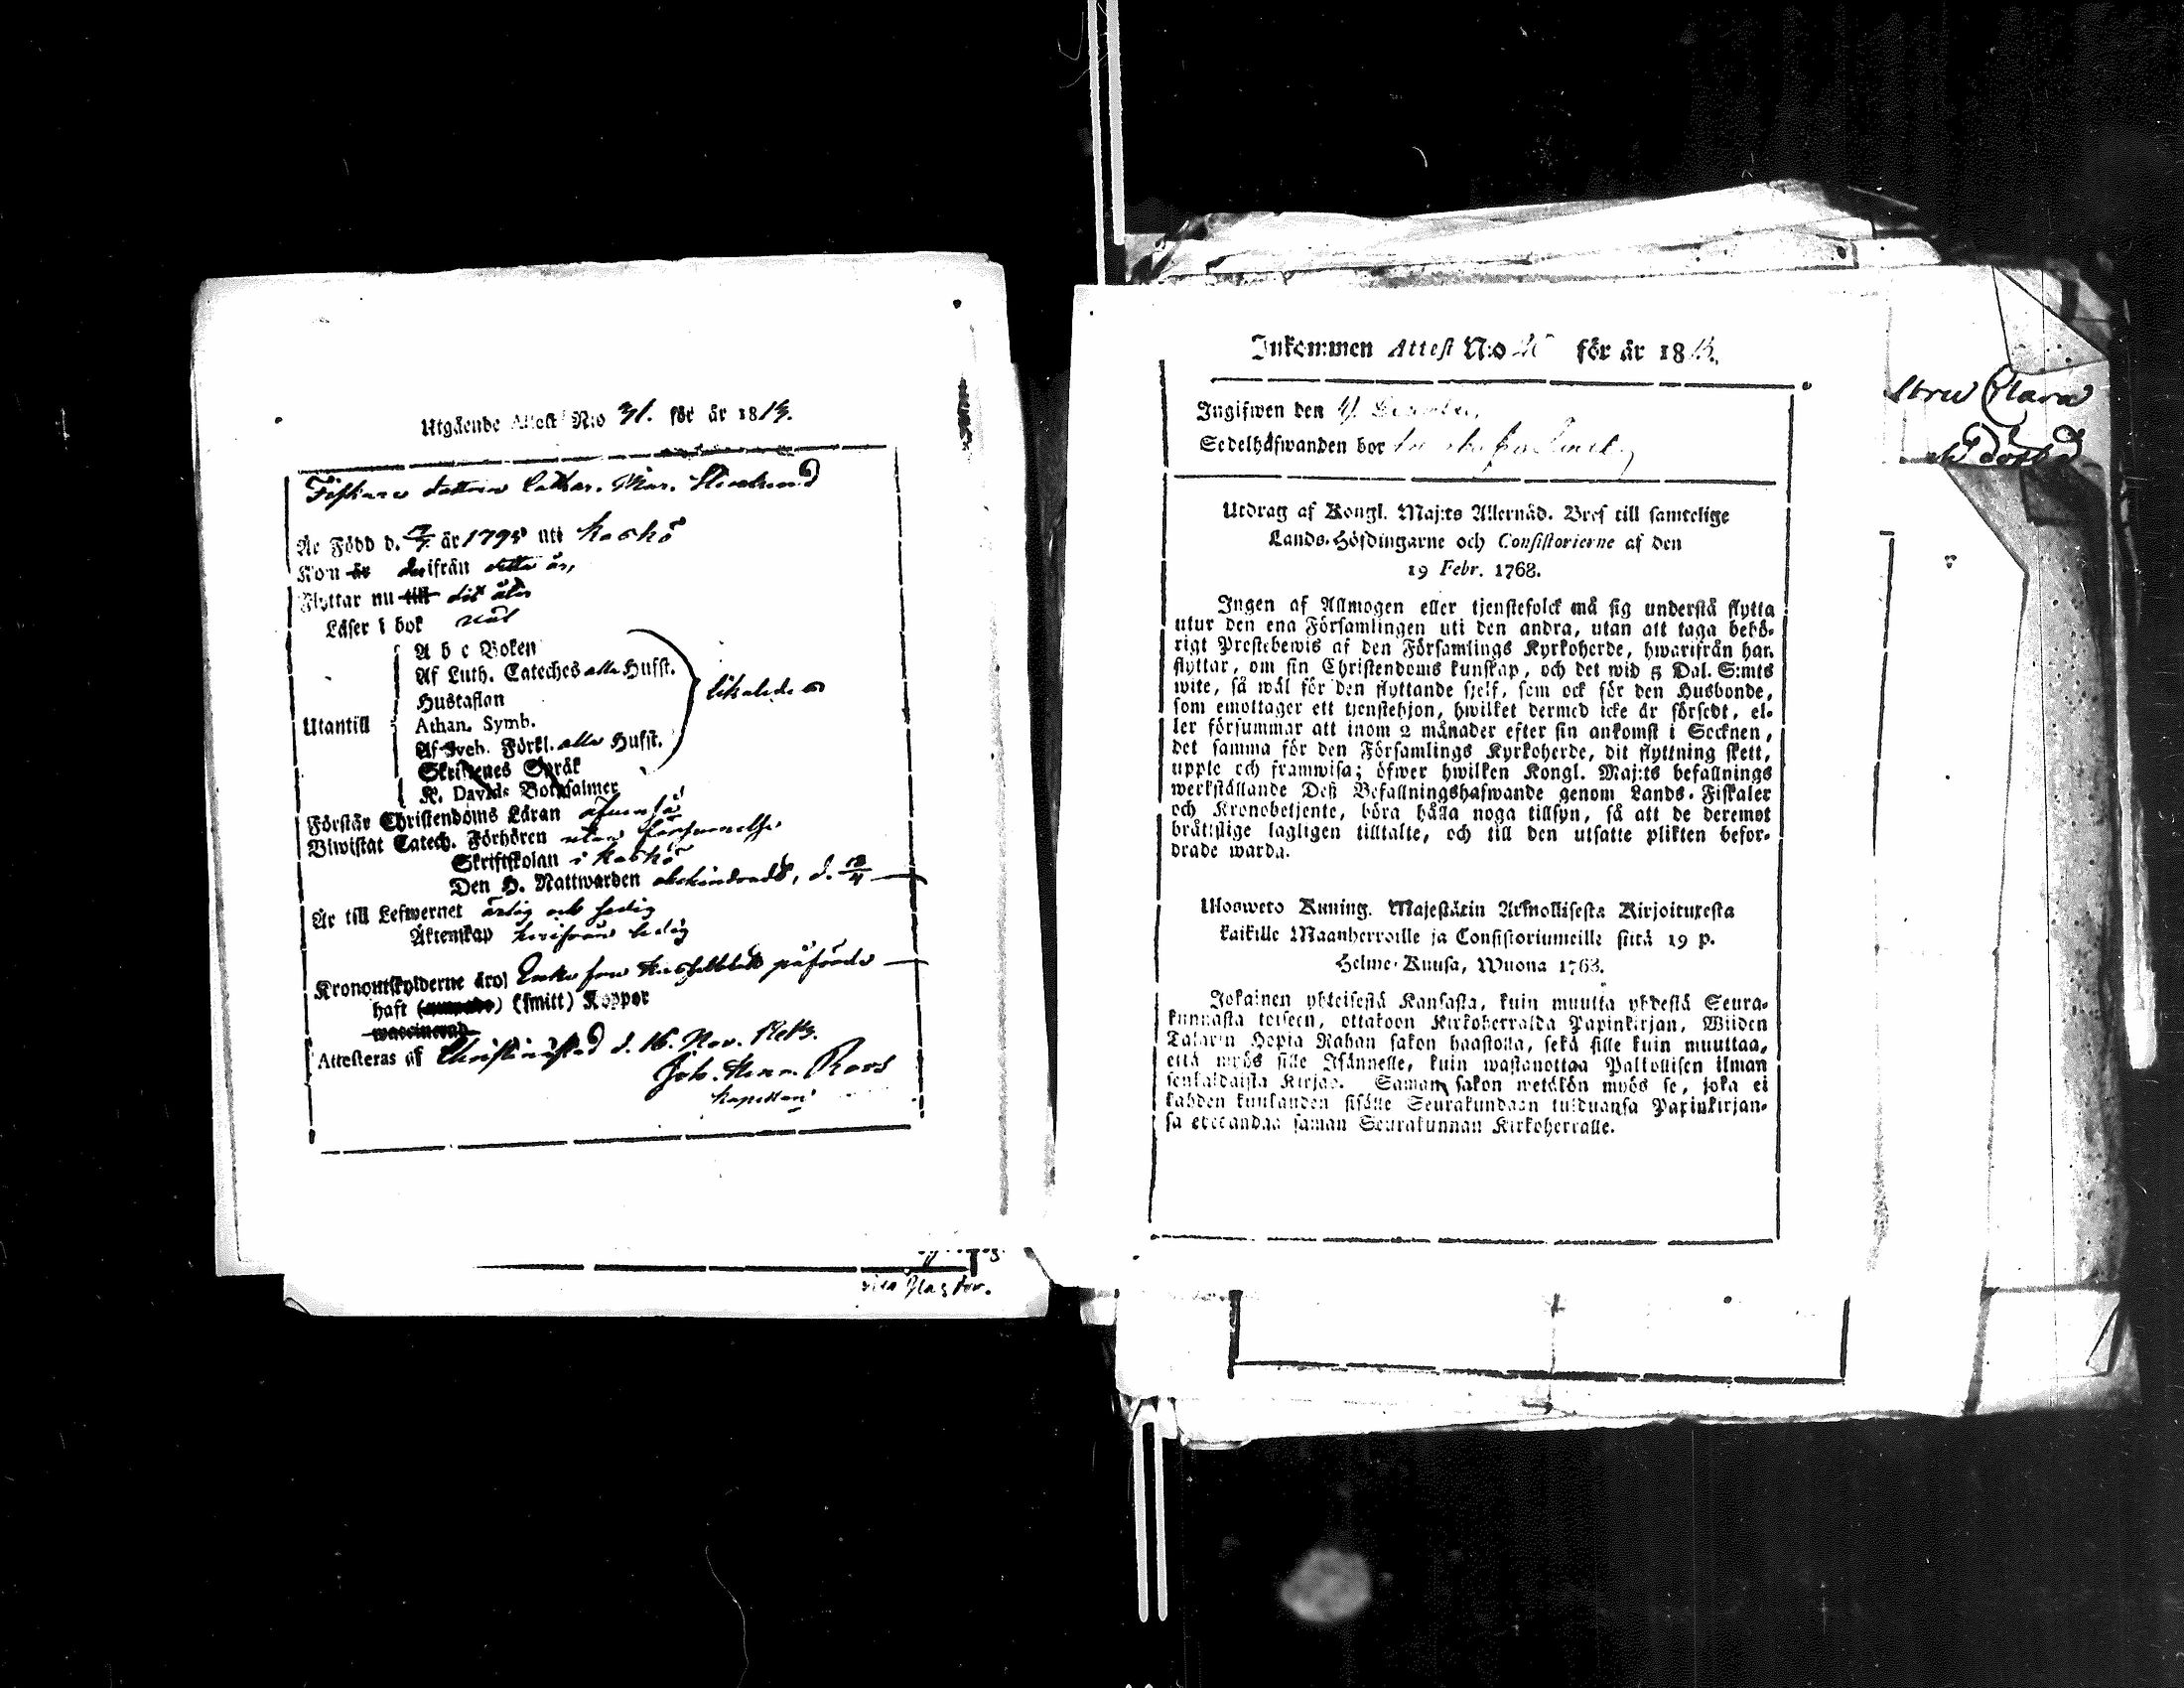 Utgående Attest N:o 31. för år 1813.
Fiskare dottren Cathar. Mar.
Är Född d. år 1795 uti Kaskö
Kom är derifrån detta år,
Flyttar nu till dit åter
Läser i bok väl
Utantill
A b c Boken
Af Luth. Cateches alla Hufst.
Hustaflan
Athan. Symb.
Af Sveb. Förkl. alla Hufst.
Skriftenes Språk
K. Davids Botpsalmer
likaledes
Förstår Christendoms Läran äfvenså
Biwistat Catech. Förhören utan försummelse
Skriftskolan i Kaskö
Den H. Nattwarden obehindradt, d. 18/4
Är till Lefwernet ärlig och sedig
Äktenskap härifrån ledig
Kronoutskylderne äro påförde
haft (smitt) Koppor
waccinerad
Attesteras af Christinæstad d. 16. Nov. 1813.
Joh. Roos
Kapellan
Inkommen Attest N:o för år 18
Ingifwen den
Sedelhafwanden bor
Utdrag af Kongl. Maj:ts Allernåd. Bref till samtelige
Lands-Höfdingarne och Consistorierne af den
19 Febr. 1768.
Ingen af Allmogen eller tjenstefolck må sig understå flytta
utur den ena Församlingen uti den andra, utan att taga behö-
rigt Prestebewis af den Församlings Kyrkoherde, hwarifrån han
flyttar, om sin Christendoms kunskap, och det wid 5 Dal. S:mts
wite, så wäl för den flyttande sjelf, som ock för den Husbonde,
som emottager ett tjenstehjon, hwilket dermed icke är försedt, el-
ler försummar att inom 2 månader efter sin ankomst i Socknen,
det samma för den Församlings Kyrkoherde, dit flyttning skett,
upple och framwisa; öfwer hwilken Kongl. Maj:ts befallnings
werkställande Deß Befallningshafwande genom Lands-Fiskaler
och Kronobetjente, böra hålla noga tillsyn, så att de deremot
bråttslige lagligen tilltalte, och till den utsatte plikten befor-
drade warda.
Ulosweto Kuning. Majestätin Armollisesta Kirjoituxesta
kaikille Maanherroille ja Consistoriumeille siitä 19 p.
Helme-Kuusa, Wuona 1768.
Jokainen yhteisestä Kansasta, kuin muutta yhdestä Seura-
kunnasta toiseen, ottakoon Kirkoherralda Papinkirjan, Wiiden
Talarin Hopia Rahan sakon haastolla, sekä sille kuin muuttaa,
että myös sille Isännelle, kuin wastanottaa Palkollisen ilman
senkaldaista Kirjaa. Saman sakon wetäkön myös se, joka ei
kahden kuukauden sisälle Seurakundaan tulduansa Papinkirjan-
sa edesandaa saman Seurakunnan Kirkoherralle.
Clara